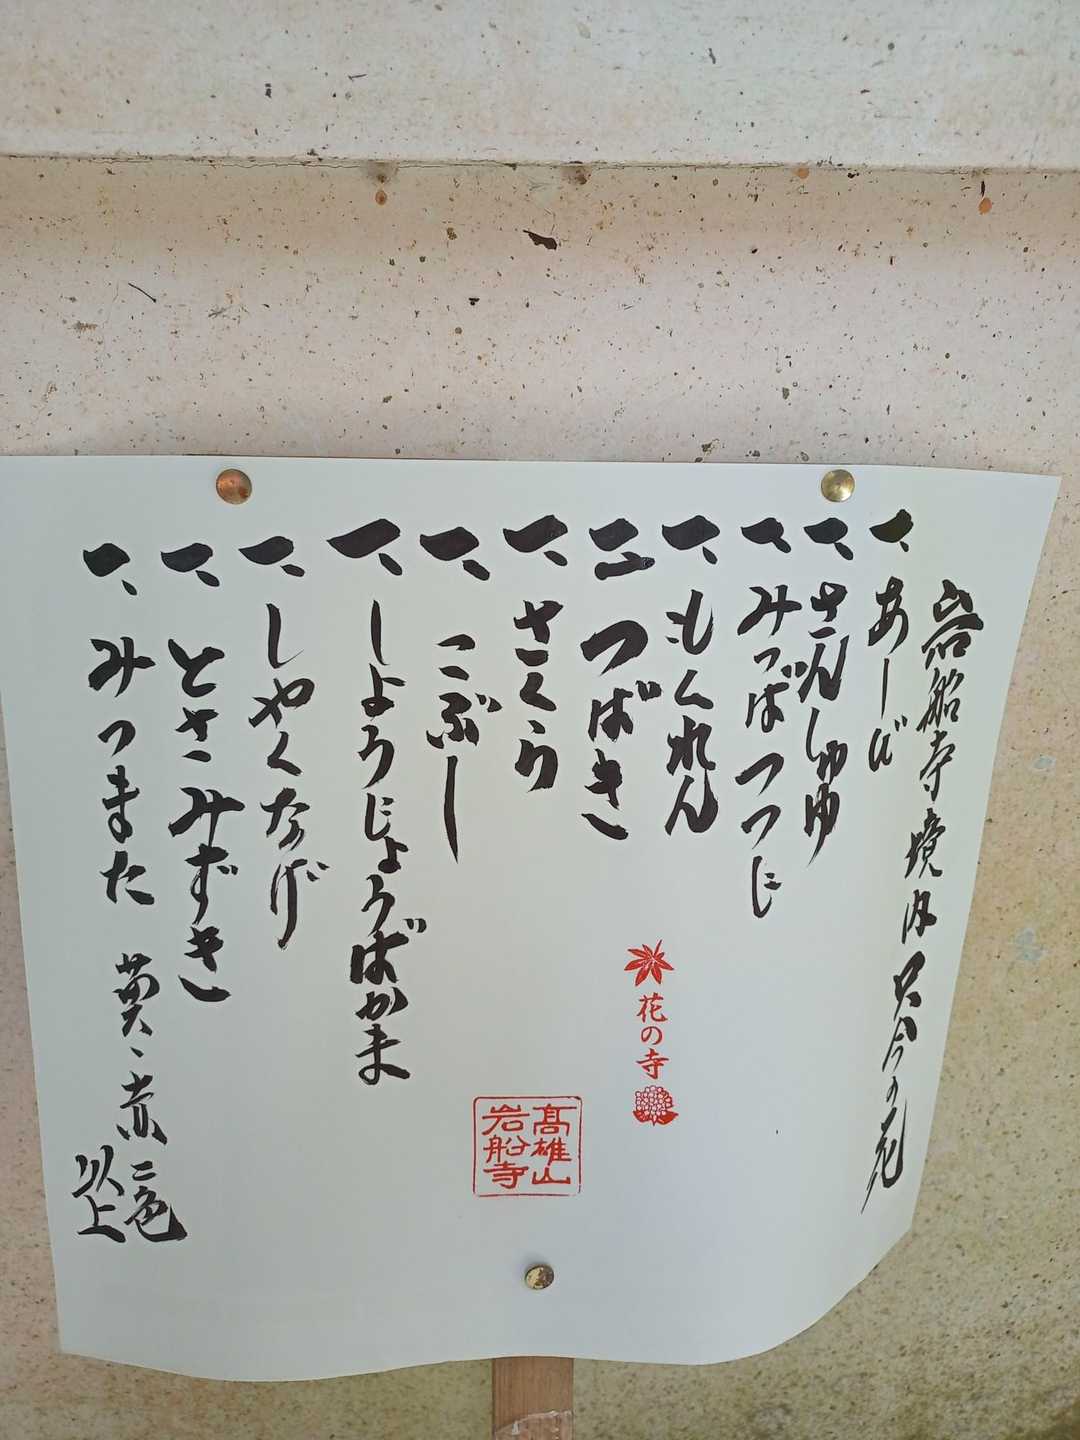 岩船寺境内只今の花
一、あしび
一、さんしゅゆ
一、みつばつつじ
一、もくれん
一、つばき
一、さくら
一、こぶし
一、しようじょうばかま
一、しやくなげ
一、とさみずき
一、みつまた 黄、赤二色
以上
花の寺
高雄山
岩船寺